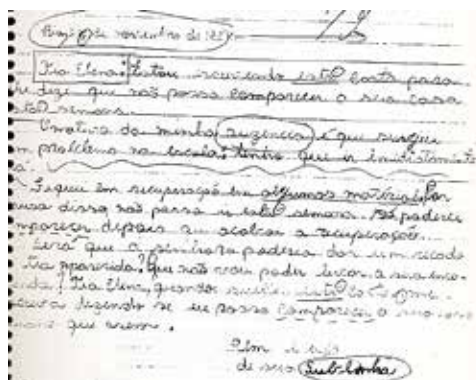 de novembro de
Tia Elena: Estou escrevendo esta carta para
dizer que não posso comparecer a sua casa
semana.
O motivo da minha auzencia é que surgiu
um problema na escola: tenho que ir imediatamente
Fiquei em recuperação em algumas matérias, Por
causa disso não posso ir esta semana. Só poderei
comparecer depois que acabar a recuperação.
Será que a senhora poderia dar um recado
Tia Aparecida? Que não vou poder levar a sua
Tia Elena, quando receber esta carta me
escreva dizendo se eu posso comparecer a sua casa
que vem.
Um beijo
de seu Sublinha